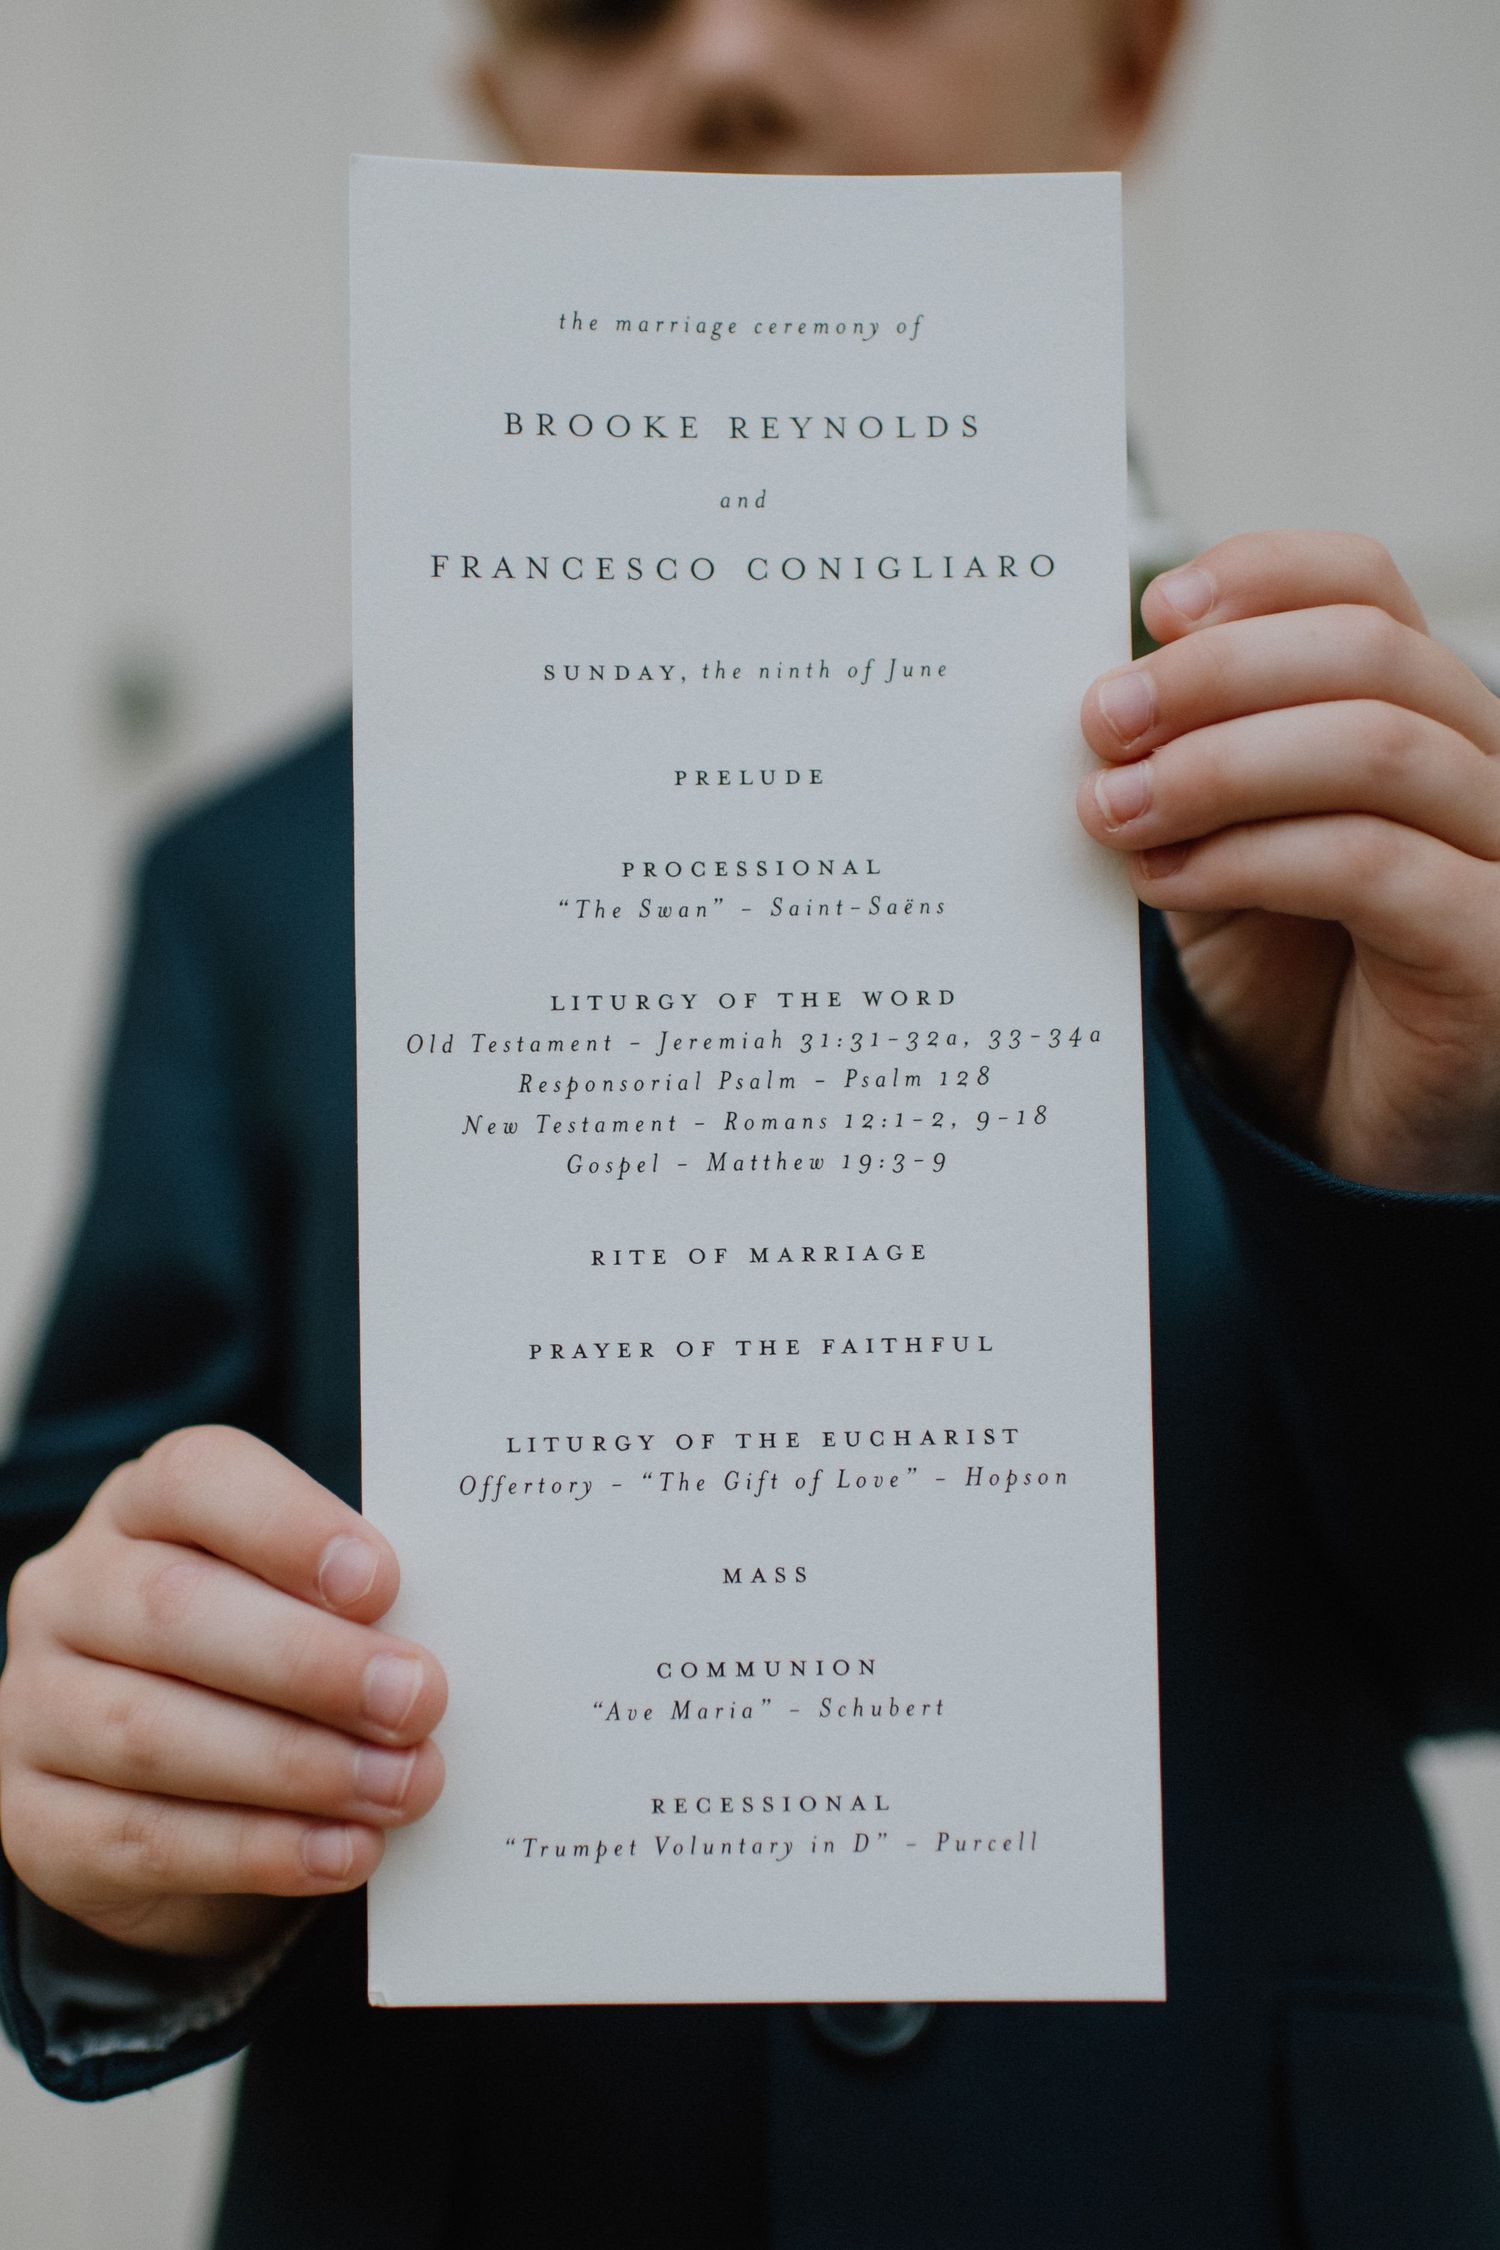 the marriage ceremony of
BROOKE REYNOLDS
and
FRANCESCO CONIGLIARO
SUNDAY, the ninth of June
PRELUDE
PROCESSIONAL
“The Swan” – Saint-Saëns
LITURGY OF THE WORD
Old Testament – Jeremiah 31:31-32a, 33-34a
Responsorial Psalm – Psalm 128
New Testament – Romans 12:1-2, 9-18
Gospel – Matthew 19:3-9
RITE OF MARRIAGE
PRAYER OF THE FAITHFUL
LITURGY OF THE EUCHARIST
Offertory – “The Gift of Love” – Hopson
MASS
COMMUNION
“Ave Maria” – Schubert
RECESSIONAL
“Trumpet Voluntary in D” – Purcell